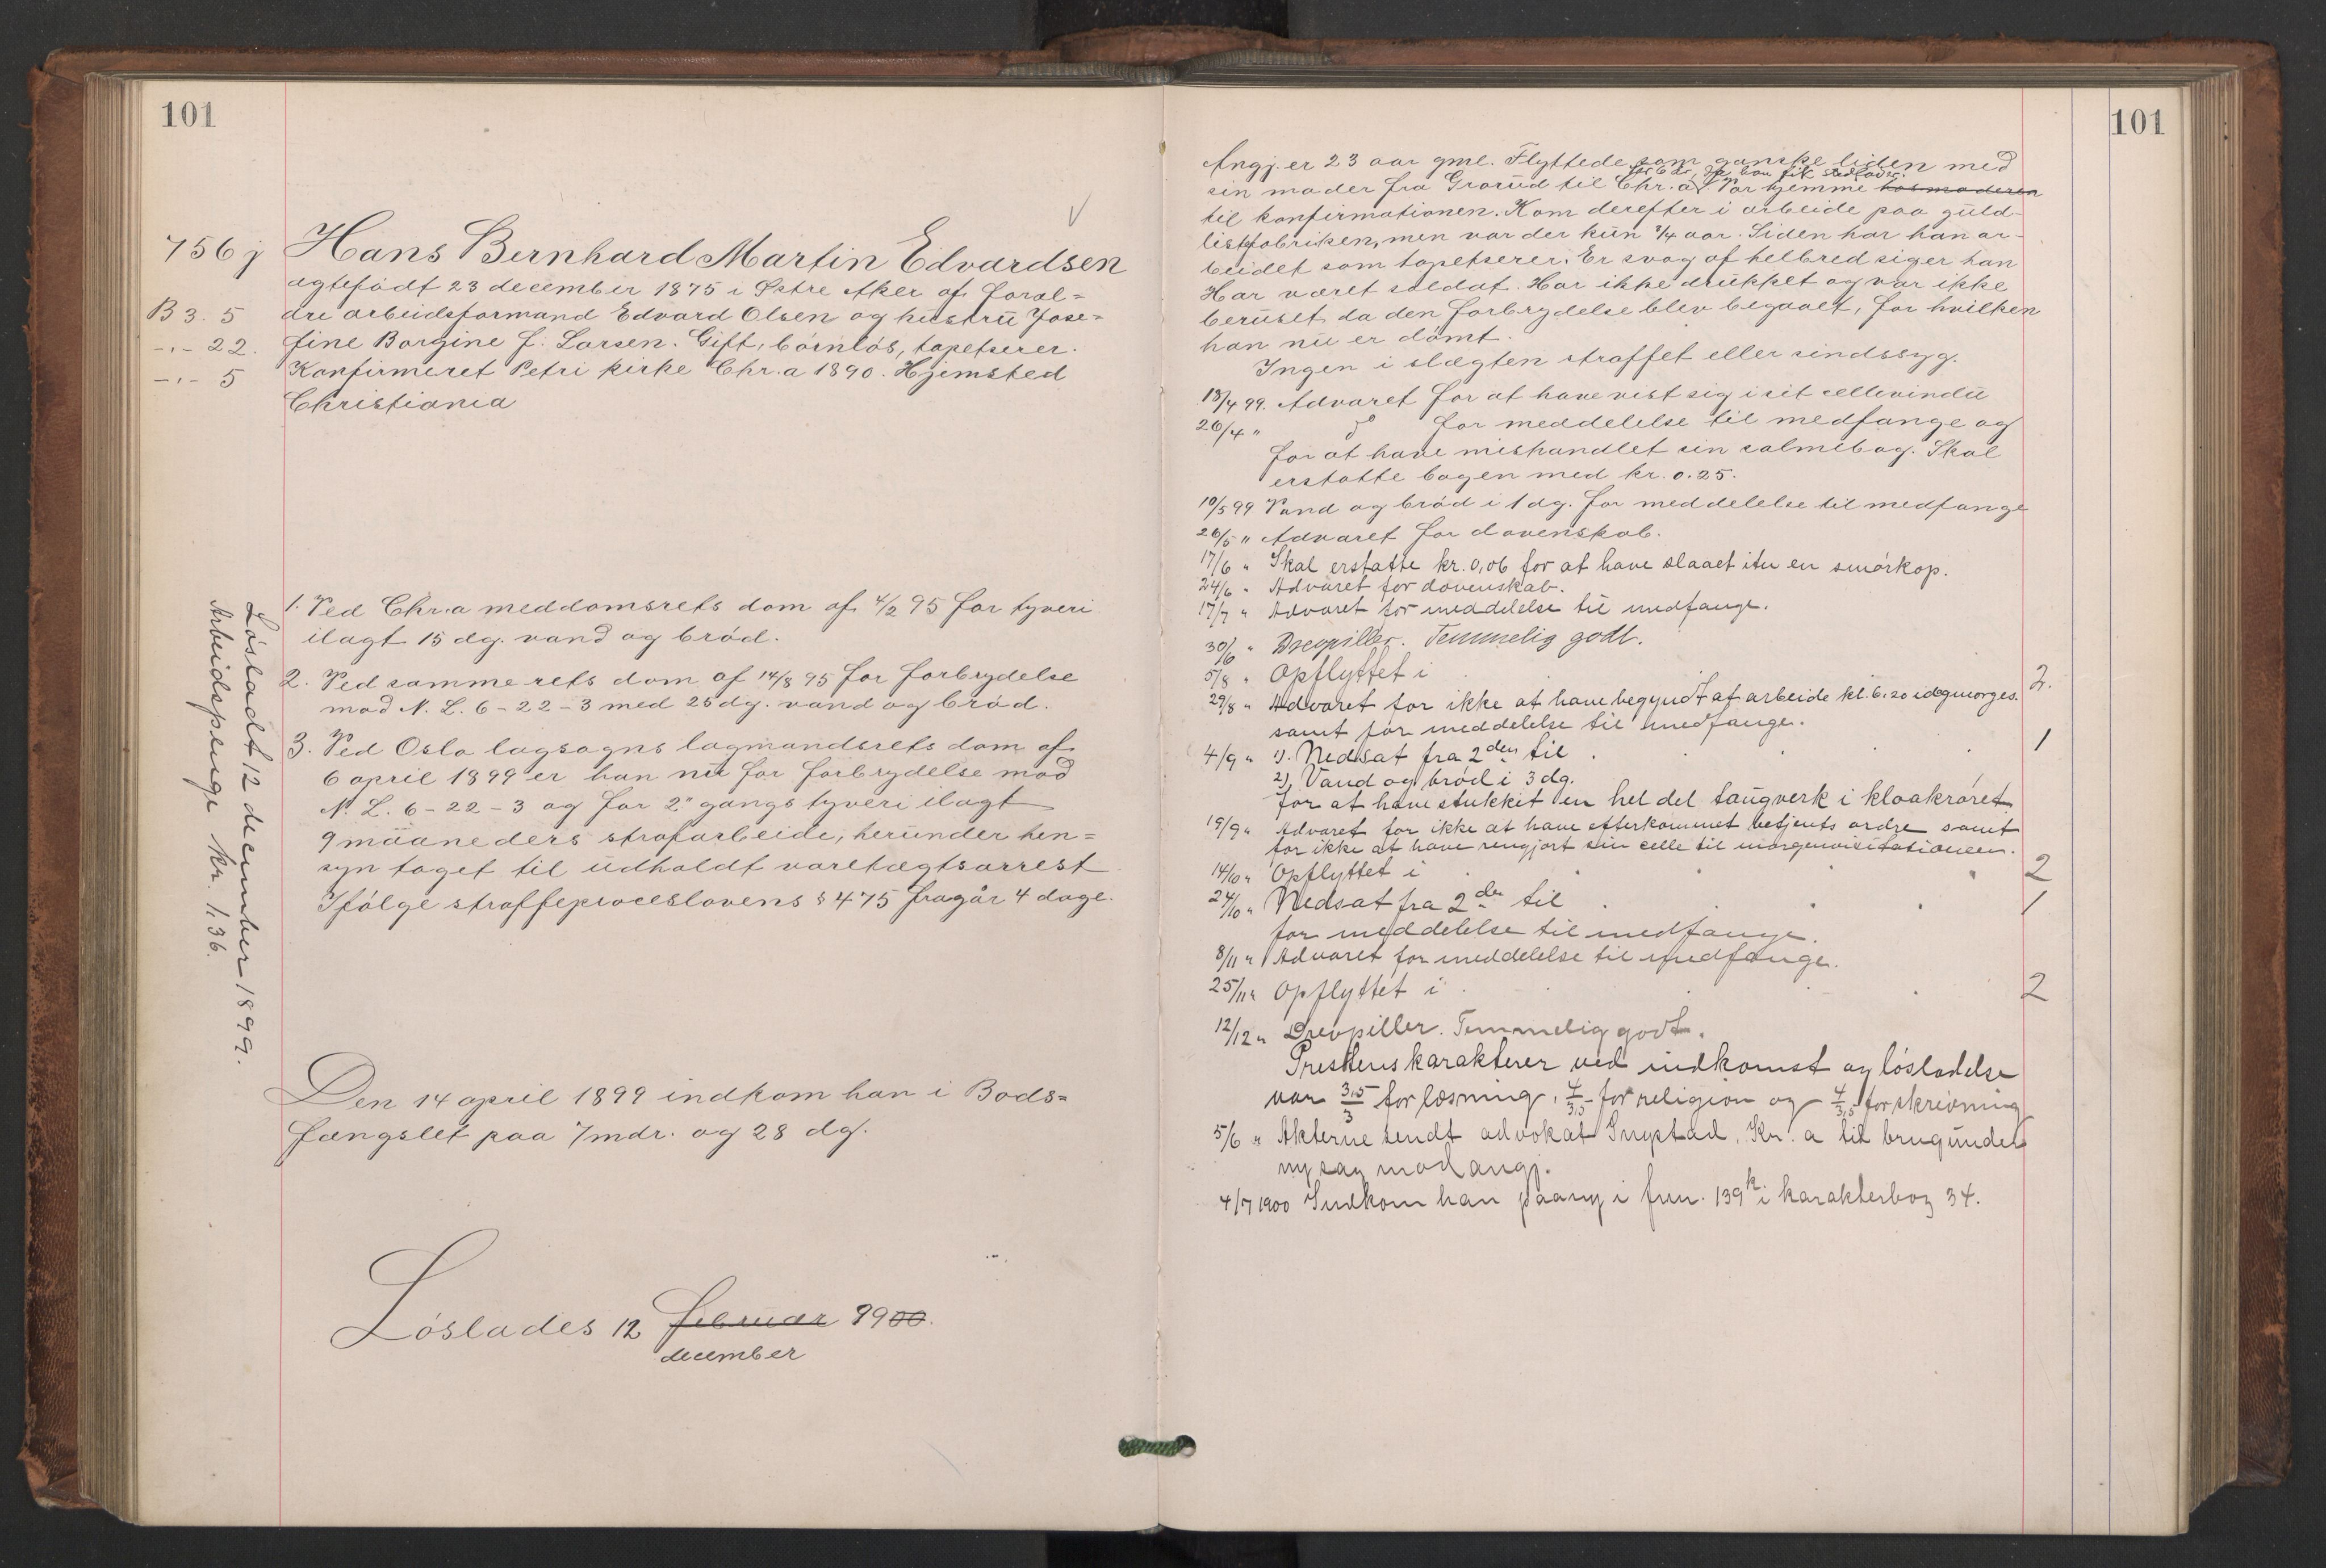 101
756 j Hans Bernhard Martin Edvardsen
ægtefødt 23 december 1875 i Østre Aker af foræl=
B 3. 5 dre arbeidsformand Edvard Olsen og hustru Jose=
-"- 22. fine Borgine f. Larsen. Gift, børnløs, tapetserer.
-"- 5 Konfirmeret Petri kirke Chr.a 1890. Hjemsted
Christiania
1. Ved Chr.a meddomsrets dom af 4/2 95 for tyveri
ilagt 15 dg. vand og brød.
2. Ved samme rets dom af 14/8 95 for forbrydelse
mod N. L. 6-22-3 med 25 dg. vand og brød.
3. Ved Oslo lagsogns lagmandsrets dom af
6 april 1899 er han nu for forbrydelse mod
N. L. 6-22-3 og for 2" gangs tyveri ilagt
9 maaneders strafarbeide, herunder hen=
syn taget til udholdt varetægtsarrest
Ifølge straffeproceslovens § 475 fragår 4 dage.
Løsladt 12 december 1899.
Arbeidspenge Kr. 1,36.
Den 14 april 1899 indkom han i Bods=
fængslet paa 7 mdr. og 28 dg.
Løslades 12 februar 9900.
december
101
Angj. er 23 aar gml. Flyttede som ganske liden med
sin moder fra Grorud til Chr.a. Var hjemme hos moderen
til konfirmationen. Kom derefter i arbeide paa guld-
listefabriken, men var der kun 3/4 aar. Siden har han ar-
beidet som tapetserer. Er svag af helbred siger han
Har været soldat. Har ikke drukket og var ikke
beruset da den forbrydelse blev begaaet, for hvilken
han nu er dømt.
Ingen i slægten straffet eller sindssyg.
18/4 99. Advaret for at have vist sig i sit cellevindu
26/4 " do for meddelelse til medfange og
for at have mishandlet sin salmebog. Skal
erstatte bogen med kr. 0.25.
10/5 99 Vand og brød i 1 dg. for meddelelse til medfange
26/5 " Advaret for dovenskab.
17/6 " Skal erstatte kr. 0,06 for at have slaaet itu en smørkop.
24/6 " Advaret for dovenskab.
17/7 " Advaret for meddelelse til medfange.
30/6 " Drevpiller. Temmelig godt.
5/8 " Opflyttet i 2.
29/8 " Advaret for ikke at have begyndt at arbeide kl. 6.20 idagmorges.
samt for meddelelse til medfange.
4/9 " 1). Nedsat fra 2den til 1
2), Vand og brød i 3 dg.
for at have stukket en hel del taugverk i kloakrøret
19/9 " Advaret for ikke at have efterkommet betjents ordre samt
for ikke at have rengjort sin celle til morgenvisitationen.
14/10 " Opflyttet i 2
24/10 " Nedsat fra 2den til 1
for meddelelse til medfange.
8/11 " Advaret for meddelelse til medfange.
25/11 " Opflyttet i 2
12/12 " Drevpiller. Temmelig godt.
Prestens karakterer ved indkomst og løsladelse
var 3,5/3 for læsning, 4/3,5 for religion og 4/3,5 for skrivning
5/6 " Akterne sendt advokat Kr.a til brug under
ny sag mod angj.
4/7 1900 Indkom han paany i fnn. 139k i karakterbog 34.